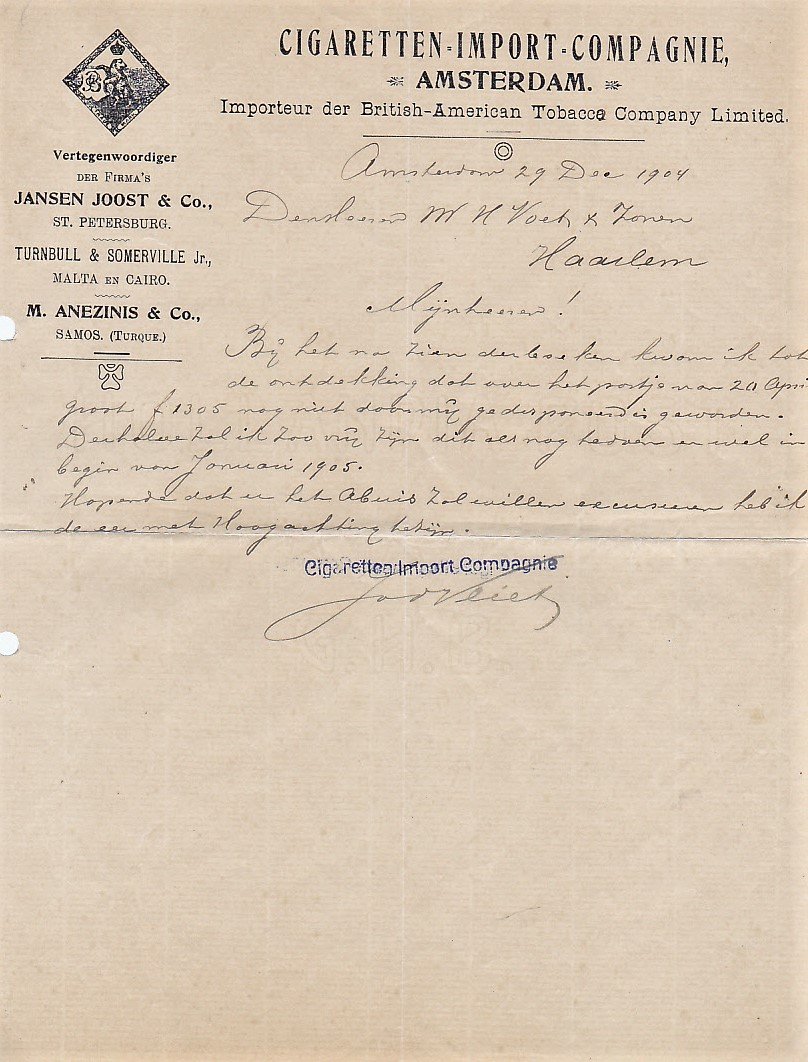 CIGARETTEN-IMPORT-COMPAGNIE,
AMSTERDAM.
Importeur der British-American Tobacco Company Limited.
Vertegenwoordiger
DER FIRMA'S
JANSEN JOOST & Co.,
ST. PETERSBURG.
TURNBULL & SOMERVILLE Jr.,
MALTA EN CAIRO.
M. ANEZINIS & Co.,
SAMOS. (TURQUE.)
Amsterdam 29 Dec 1904
Den Heeren W H Voet & Zonen
Haarlem
Mijnheeren!
Bij het na zien der boeken kwam ik tot
de ontdekking dat over het postje van 20 Apri
groot f 1305 nog niet door mij gedisponeerd is geworden.
Derhalve zal ik zoo vrij zijn dit als nog te doen en wel in
begin van Januari 1905.
Hopende dat u het Abuis zal willen excuseeren heb ik
de eer met Hoogachting te zijn.
Cigaretten Import Compagnie